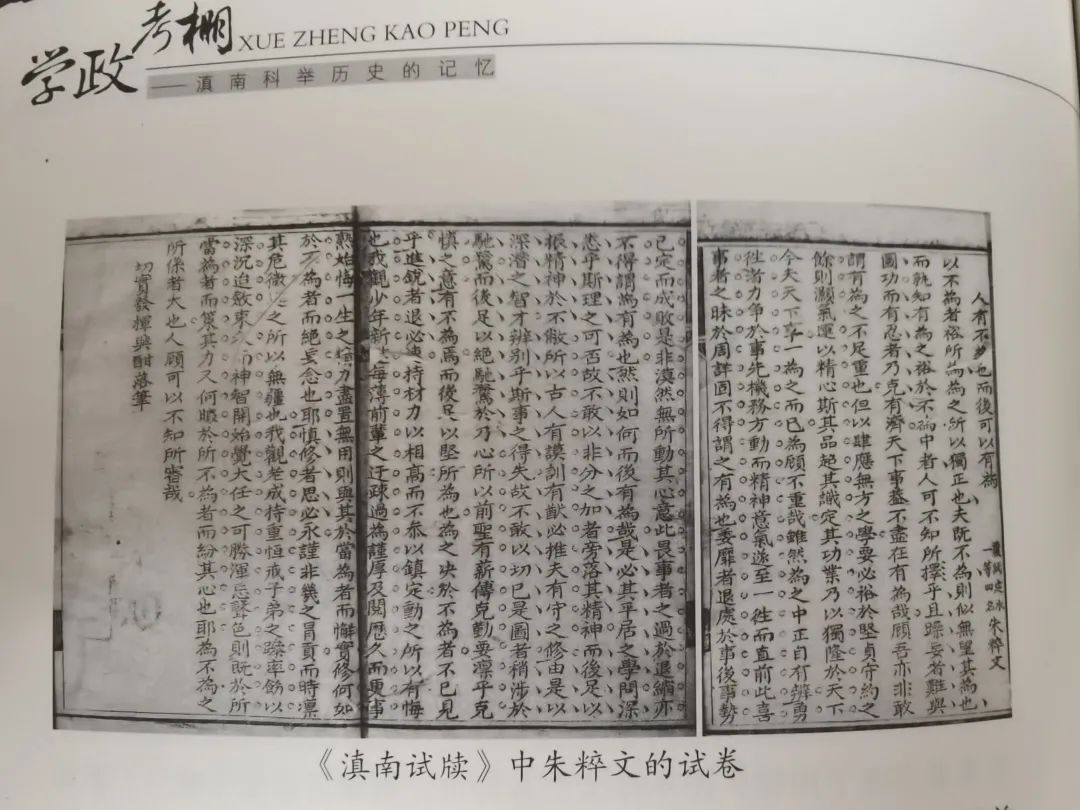 学政考棚
XUE ZHENG KAO PENG
——滇南科举历史的记忆
人有不為也而後可以有為
覆試建水
一等四名 朱粹文
以不為者裕所為為之所以獨正也夫既不為則似無望其為也
而孰知有為之裕於不為中者人可不知所擇乎且躁妄者難與
國功而有忍者乃克有濟天下事盡不盡在有為哉顧吾亦非敢
謂有為之不足重也但以肆應無方之學要必裕於堅貞守約之
餘則灝氣運以精心斯其品超其識定其功業乃以獨隆於天下
今夫天下事一為之而已為顧不重哉雖然為之中正自有辨勇
往者力爭於事先機務方動而精神意氣遂至一往而直前此喜
事者之昧於周詳固不得謂之有為也委靡者退處於事後事勢
已定而成敗是非漠然無所動其心意此畏事者之過於退縮亦
不得謂為有為也然則如何而後有為哉是必其平居之學問深
悉乎斯理之可否故不敢以非分之加者旁落其精神而後足以
振精神於不敝所以古人有謨訓有猷必推夫有守之修由是以
深潛之智才辨別乎斯事之得失故不敢以切己是圖者稍涉於
馳騖而後足以絕馳騖於乃心所以前聖有薪傳克勤要凜乎克
慎之意有不為焉而後足以堅所為也為之決於不為者不已見
乎進銳者退必速持材力以相高而不泰以鎮定動之所以有悔
也我觀少年新進每薄前輩之迂疎過為謹厚及閱歷久而更事
熟始悔一生之精力盡置無用則與其於當為者而懈實修何如
於不為者而絕妄念也耶慎修者思必永謹非幾之冒貢而時凜
其危微之所以無疆也我觀老成持重恒戒子弟之躁率飭以
深沉迨斂束久而神智開始覺大任之可勝渾忘聲色則既於所
當為者而策其力又何暇於所不為者而紛其心也耶為不為之
所係者大也人顧可以不知所審哉
切實發揮興酣落筆
《滇南试牍》中朱粹文的试卷